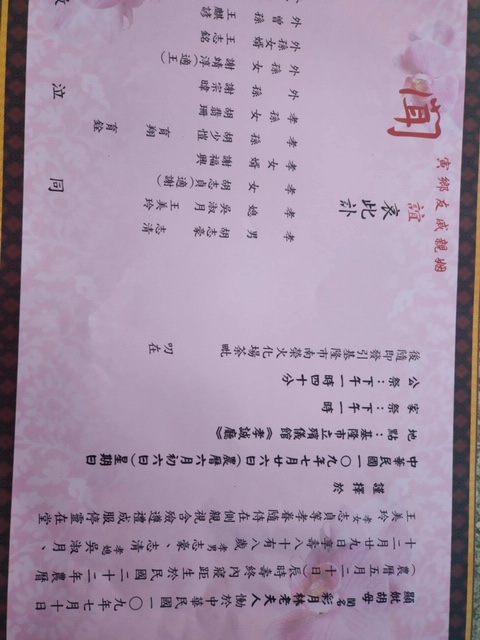 顯妣胡母閨名彩月林老夫人慟於中華民國一〇九年七月十日
(農曆五月二十日)辰時壽終內寢距生於民國二十二年農曆
十二月廿九日享壽八十有八歲孝男志豪、志清孝媳吳淑月、
王美玲孝女志貞等孝眷隨侍在側親視含殮遵禮成服停靈在堂
謹擇於
中華民國一〇九年七月廿六日(農曆六月初六日)星期日
地點:基隆市立殯儀館《孝誠廳》
家祭:下午一時
公祭:下午一時四十分
後隨即發引基隆市南榮火化場荼毗 叨在
姻親戚友鄉寅
誼
哀此訃
聞
孝男 胡志豪 志清
孝媳 吳淑月 王美玲
孝女 胡志貞(適謝)
孝女婿 謝福興
孝孫 胡少愷 育翔 育銓
孝孫女 胡翡珊
外孫 謝宗暐
外孫女 謝靖淳(適王)
外孫女婿 王志銘
外曾孫 王麒諺
同 泣